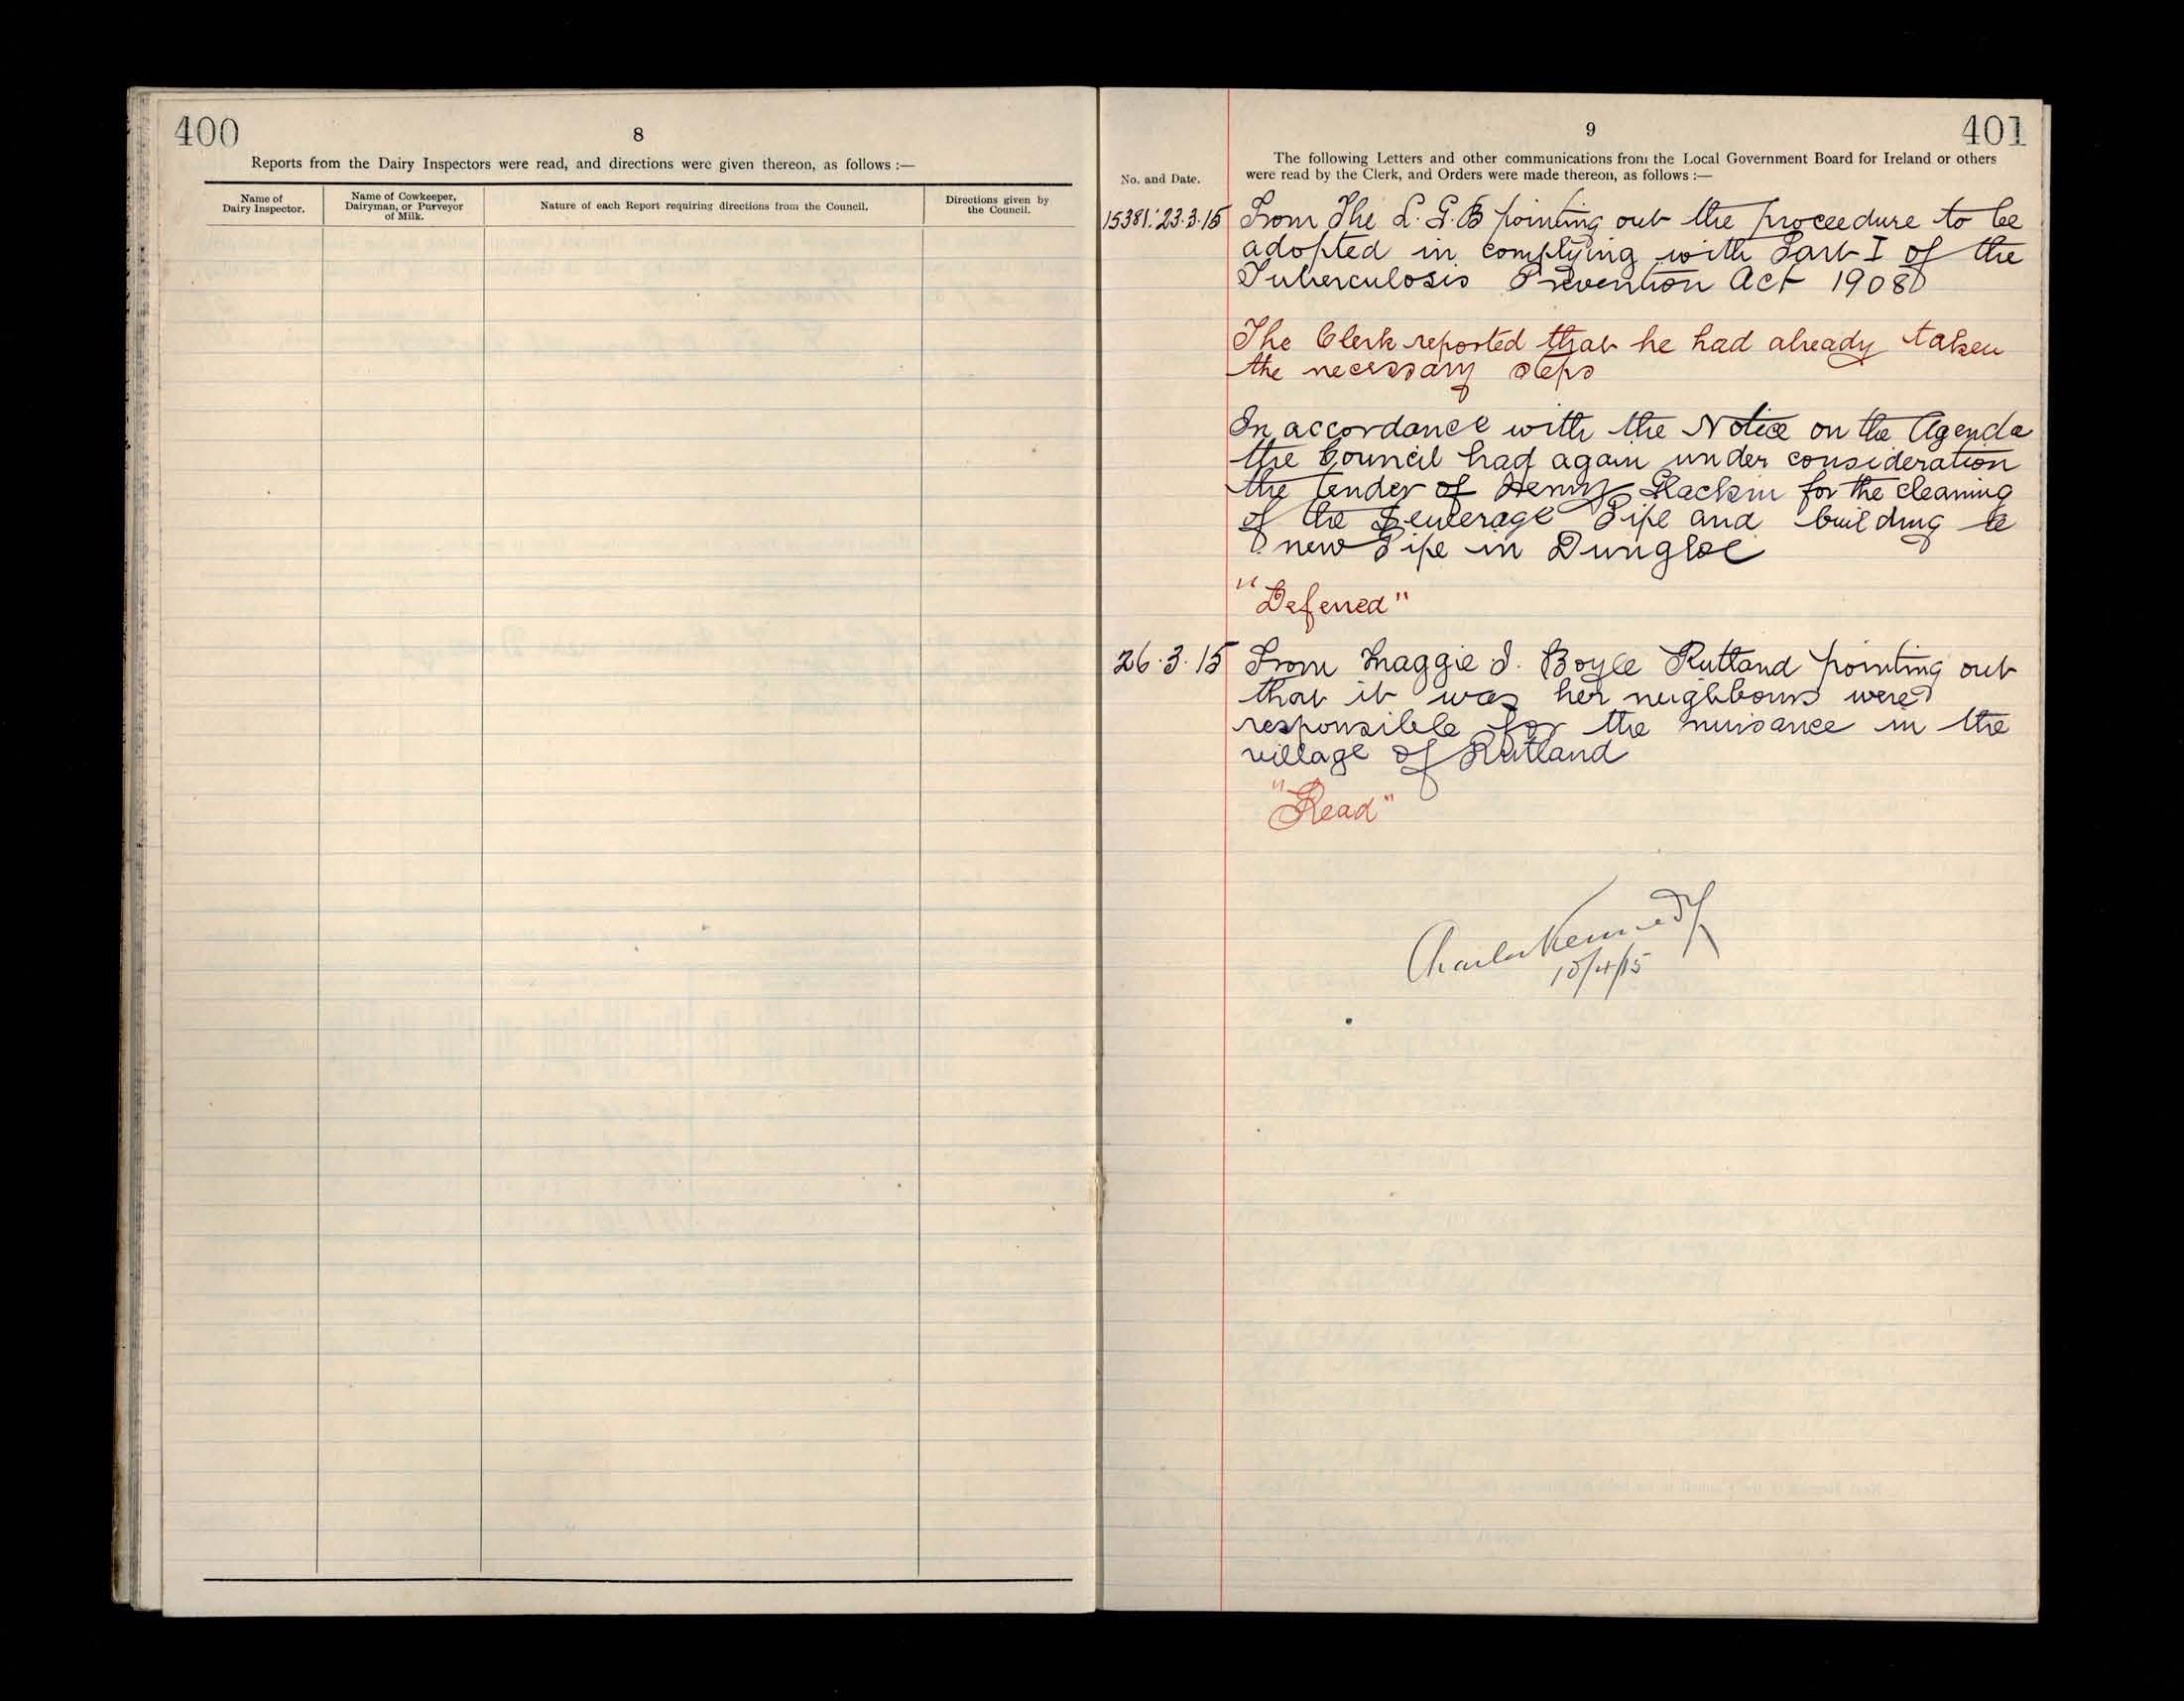 400
8
Reports from the Dairy Inspectors were read, and directions were given thereon, as follows :—
Name of
Dairy Inspector.
Name of Cowkeeper,
Dairyman, or Purveyor
of Milk.
Nature of each Report requiring directions from the Council.
Directions given by
the Council.
9
401
The following Letters and other communications from the Local Government Board for Ireland or others
were read by the Clerk, and Orders were made thereon, as follows :—
No. and Date.
15381.23.3.15 From The L. G. B pointing out the proceedure to be
adopted in complying with Part I of the
Tuberculosis Prevention Act 1908
The Clerk reported that he had already taken
the necessary steps
In accordance with the Notice on the Agenda
the Council had again under consideration
the tender of Henry for the cleaning
of the Sewerage Pipe and building a
new Pipe in Dungloe
"Deferred"
26.3.15 From Maggie J. Boyle Rutland pointing out
that it was her neighbours were
responsible for the nuisance in the
village of Rutland
"Read"
Charles Kennedy
/4/15